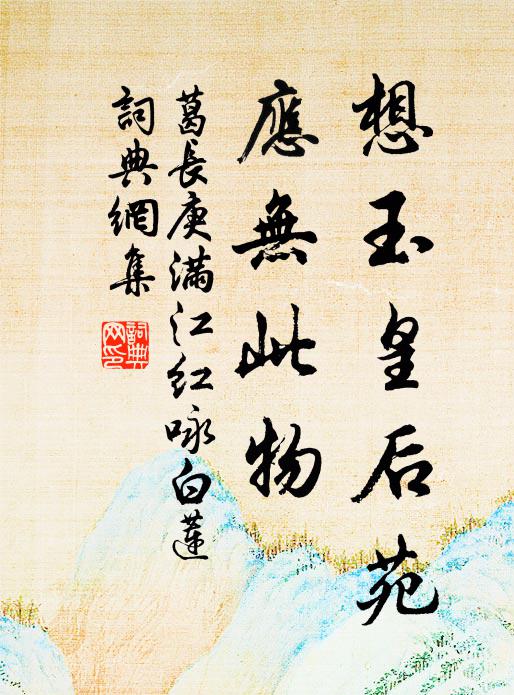 想玉皇后苑
應無此物
葛長庚滿江紅咏白蓮
詞典網集
詞典网印